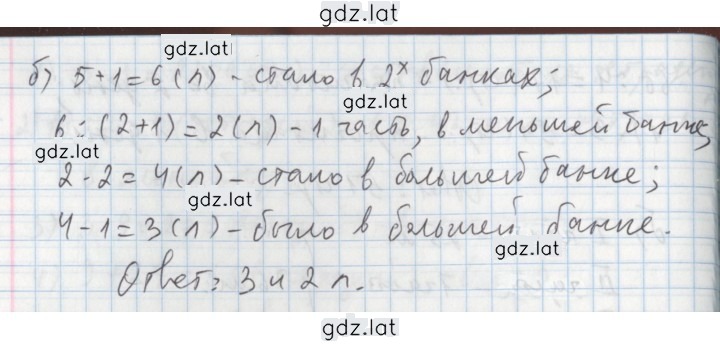 gdz.lat
gdz.lat
б) 5+1=6(л) - стало в 2х банках;
gdz.lat
6:(2+1)=2(л) - 1 часть, в меньшей банке;
gdz.lat
2·2=4(л) - стало в большей банке;
gdz.lat
4-1=3(л) - было в большей банке.
gdz.lat
Ответ: 3 и 2 л.
gdz.lat